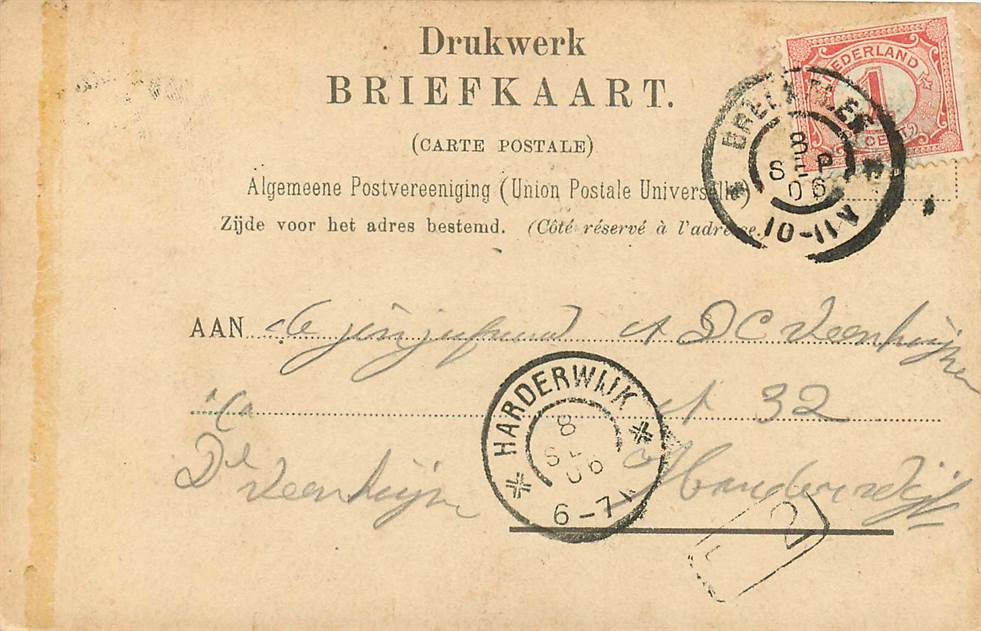 Drukwerk
BRIEFKAART.
(CARTE POSTALE)
Algemeene Postvereeniging (Union Postale Universelle)
Zijde voor het adres bestemd. (Côté réservé à l'adresse.)
NEDERLAND
1
CENT
8 SEP 06
10-11V
AAN de D C Veenhuijzen
A 32
HARDERWIJK
8 SEP 06
6-7N
Harderwijk
2